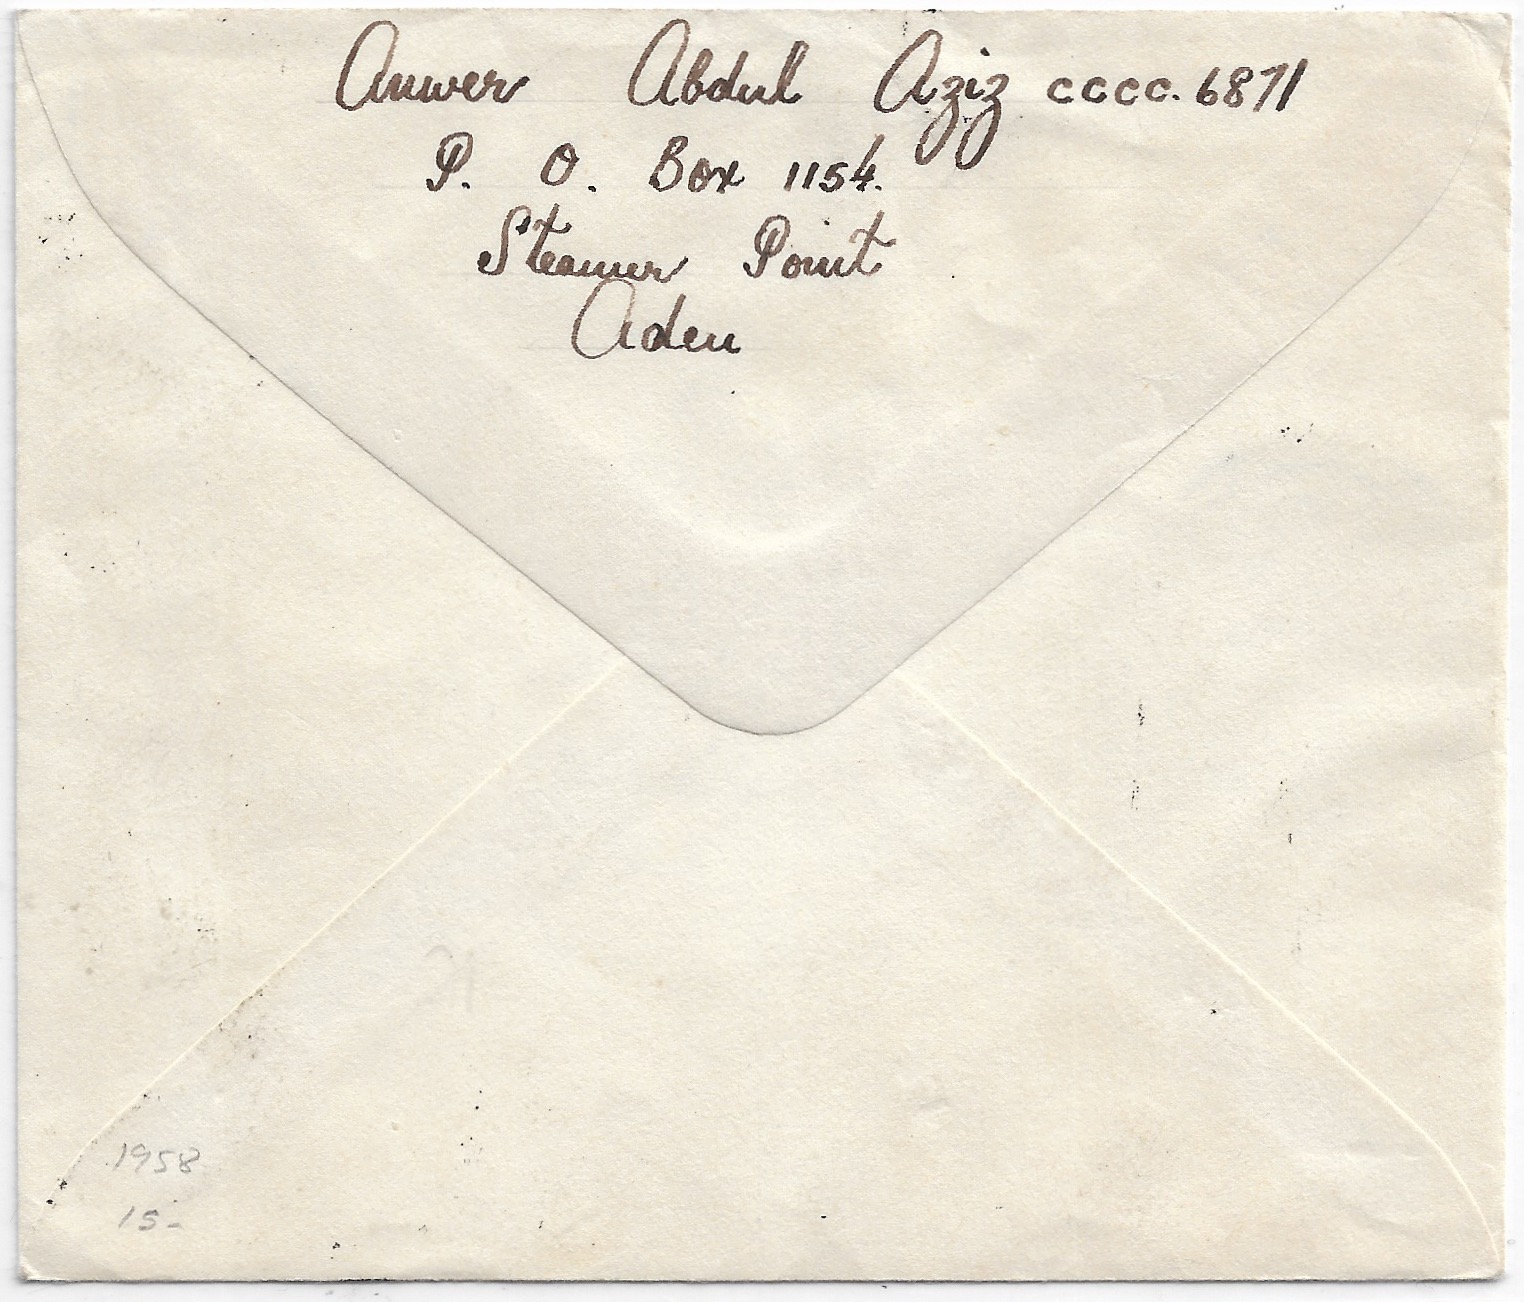 Anwer Abdul Aziz CCCC. 6871
P. O. Box 1154.
Steamer Point
Aden
1958
15-